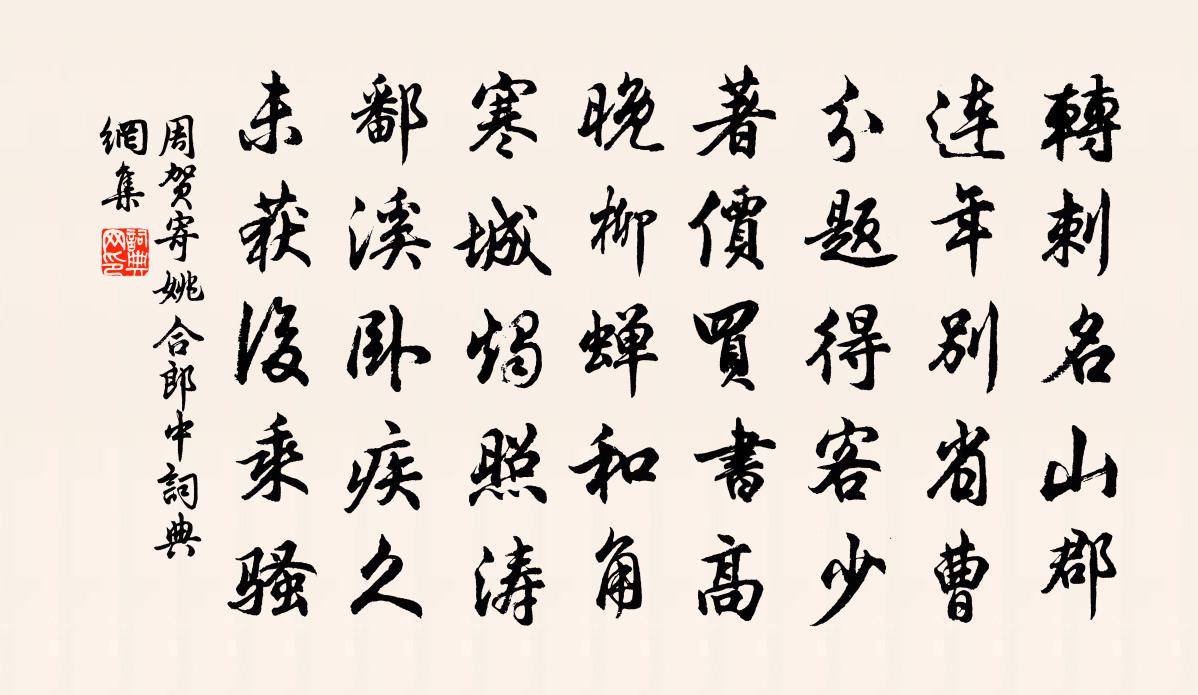 轉刺名山郡
連年別省曹
分題得客少
著價買書高
晚柳蝉和角
寒城燭照涛
鄱溪卧疾久
未获後乘骚
周贺寄姚合郎中詞典
網集
詞典
网印